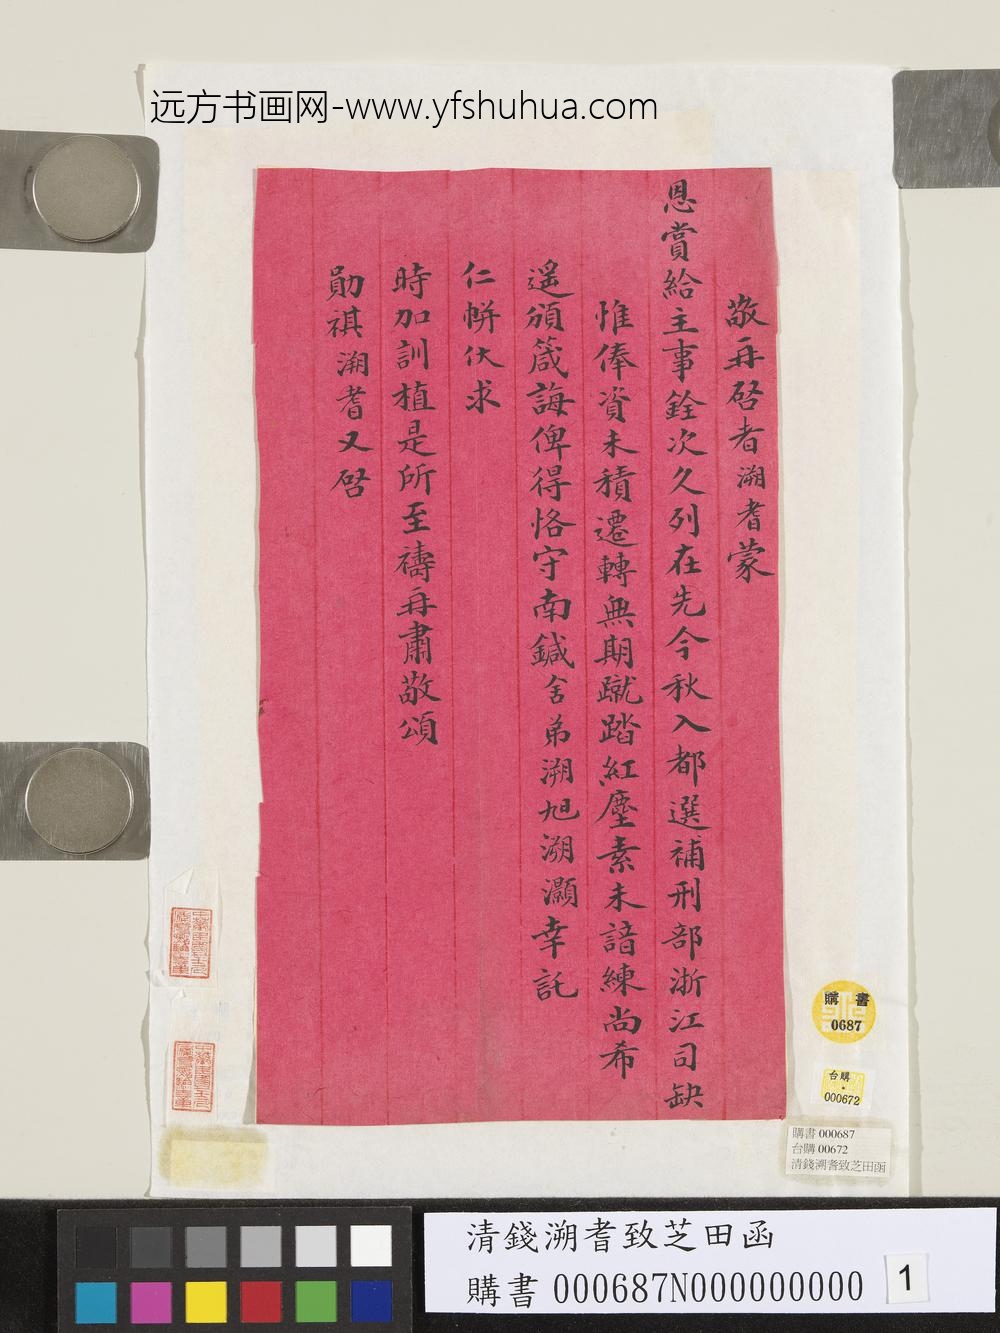 远方书画网-www.yfshuhua.com
敬再啓者溯耆蒙
恩賞給主事銓次久列在先今秋入都選補刑部浙江司缺
惟俸資未積遷轉無期蹴踏紅塵素未諳練尚希
遥頒箴誨俾得恪守南鍼舍弟溯旭溯灝幸託
仁帡伏求
時加訓植是所至禱再肅敬頌
勛祺溯耆又啓
購書
0687
台購
000672
購書 000687
台購 00672
清錢溯耆致芝田函
清錢溯耆致芝田函
購書 000687N000000000
1